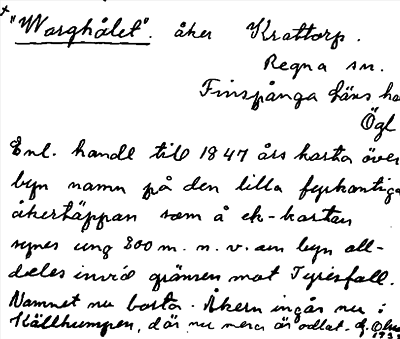 + "Warghålet". åker Krattorp.
Regna sn.
Finspånga läns ha
Ögl
Enl. handl till 1847 års karta över
byn namn på den lilla fyrkantiga
åkertäppan som å ek-kartan
synes ung 800 m. n. v. om byn all-
deles invid gränsen mot Tyrisfall.
Namnet nu borta. Åkern ingår nu i
Källhumpen, där nu mera är odlat. G.